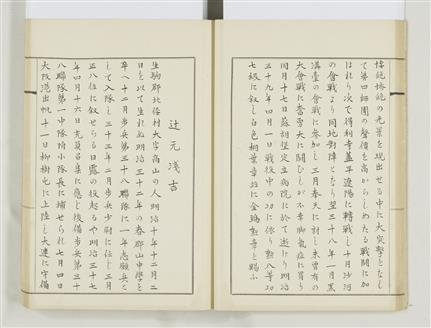 偉絶壮絶の光景を現出せる中に大突撃となし
て第四師團の聲價を高からしめたる戰闘に加
はれり次で得利寺蓋平遼陽に轉戰し十月沙河
の會戰より同地對陣となり翌三十八年一月黒
溝臺の會戰に參加し三月奉天に對し未曾有の
大會戰に奮勇大に闘ひしが不幸脚氣症に罹り
同月十七日蘇胡堡定立病院に於て逝けり明治
三十九年四月一日戰役中の功に依り勲八等功
七級に叙し白色桐葉章並に金鵄勲章と賜ふ
辻元淺吉
生駒郡北倭村大字高山の人明治十年十二月二
日を以て生れ明治三十二年の春郡山中學を
卒へ十二月歩兵第三十八聯隊に一年志願兵と
して入隊し三十三年二月歩兵少尉に任し三月
正八位に叙せらる日露の役起るや明治三十七
年四月十六日充員召集に應し後備歩兵第三十
八聯隊第一中隊附小隊長に補せられ七月四日
大阪港出帆十一日柳樹屯に上陸し大連に守備